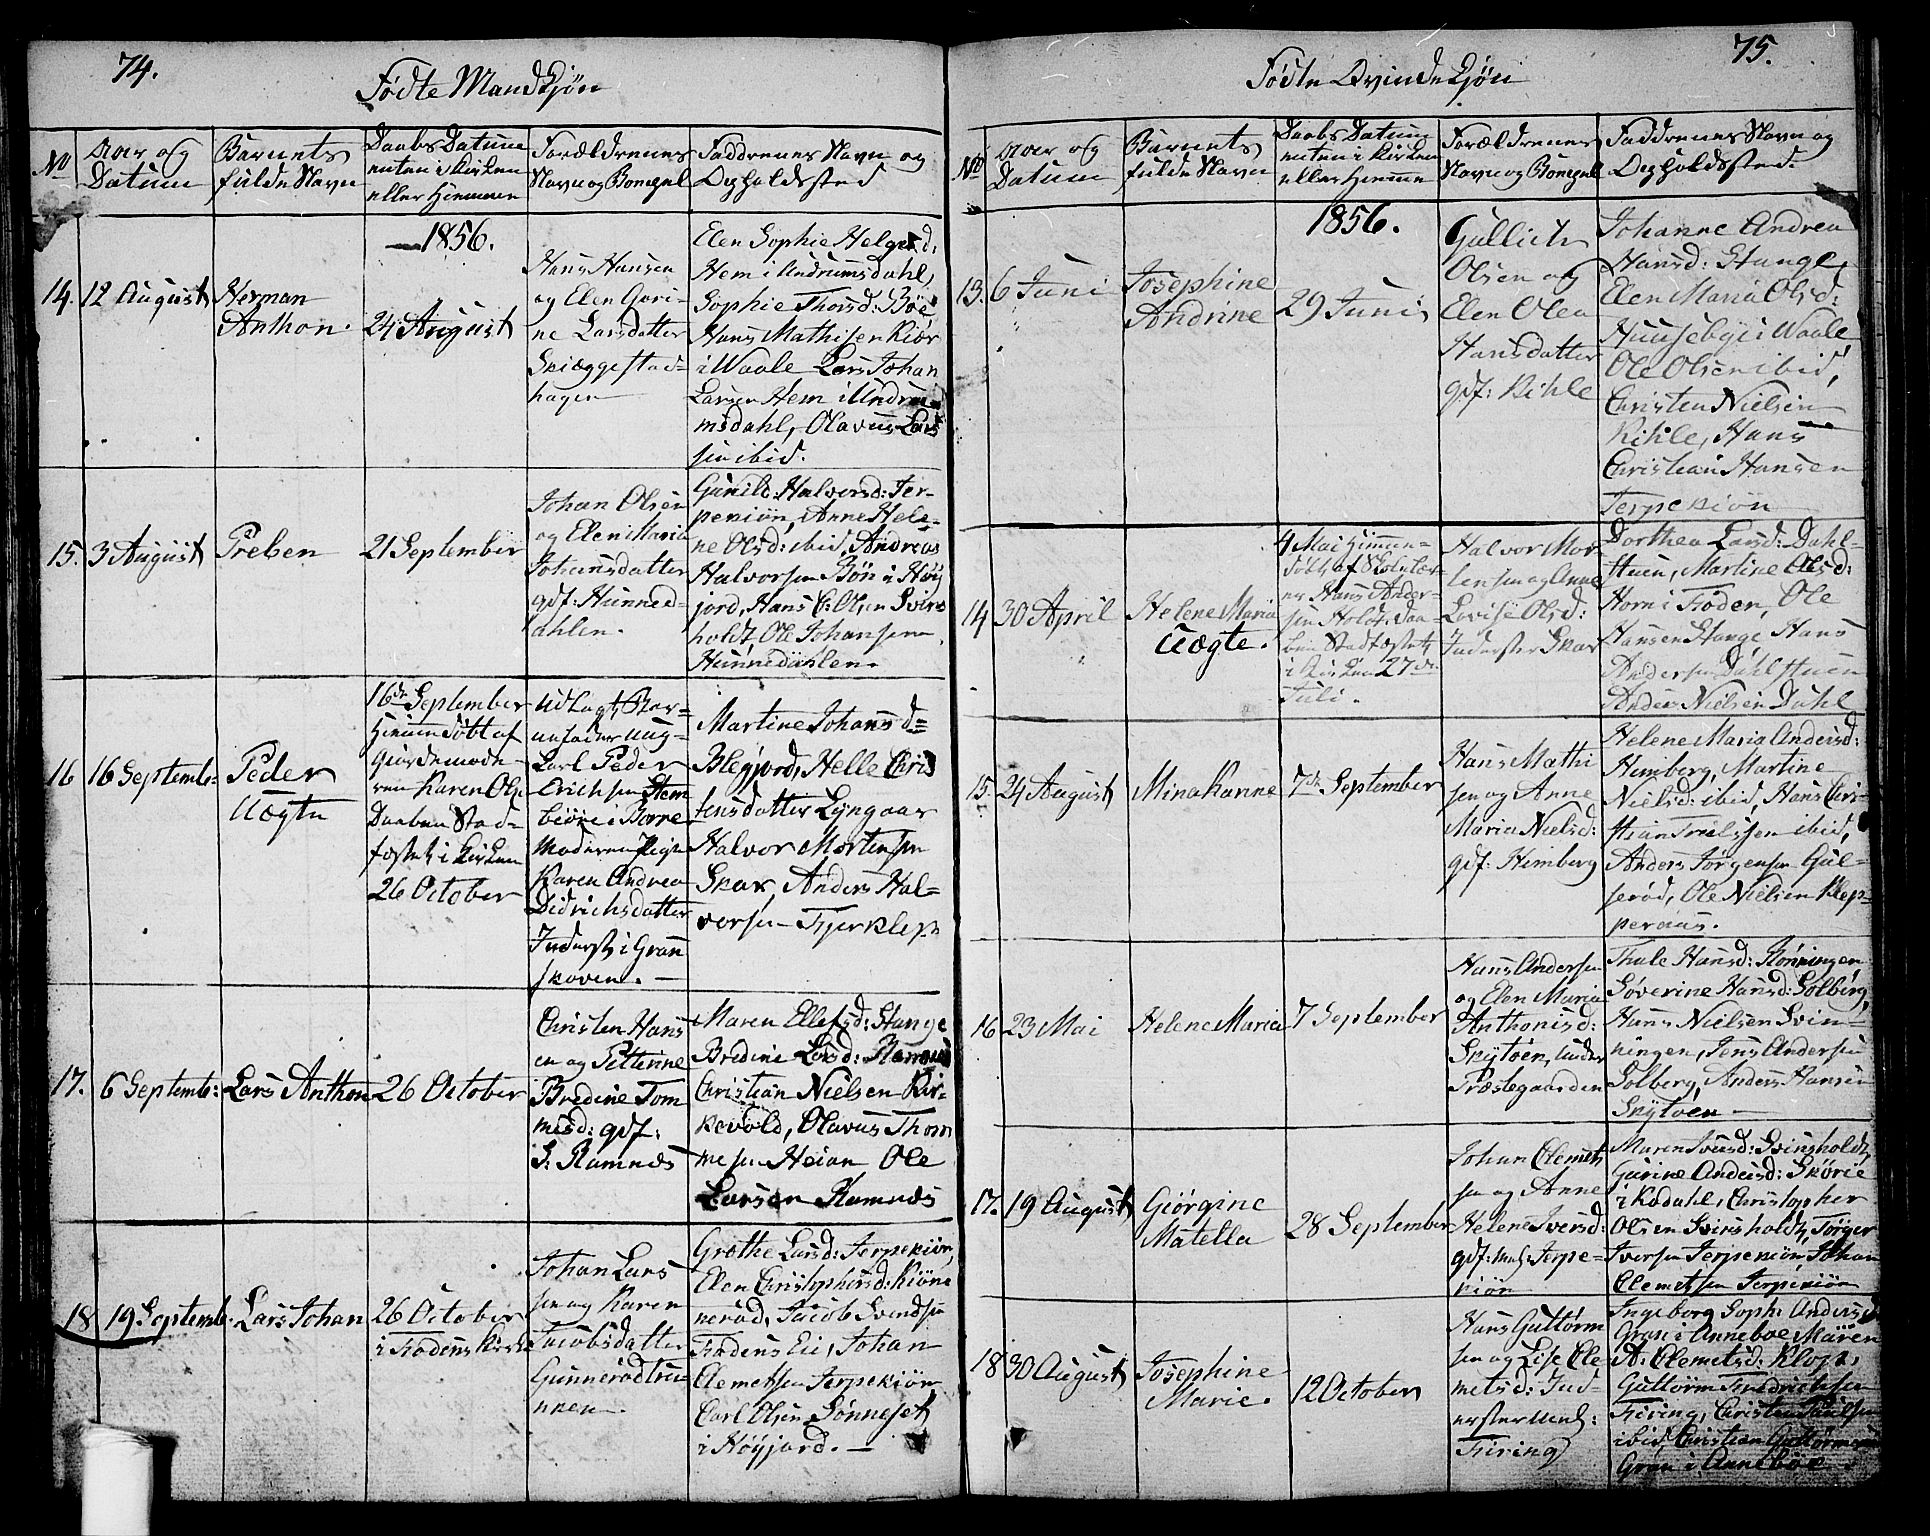 74.
Fødte Mandkjøn
No
Aar og
Datum
Barnets
fulde Navn
Daabs Datum
enten i Kirken
eller Hiemmen
Forældrenes
Navn og Bopæl
Faddrenes Navn og
Opholdssted
1856.
14.
12 August
Herman
Anthon.
24 August
Hans Hansen
og Elen Gori-
ne Larsdatter
Skiæggestad-
hagen
Elen Sophie Helgesd:
Hem i Undrumsdahl,
Sophie Thorsd: Bøe,
Hans Mathisen Kiør
i Waale Lars Johan
Larsen Hem i Undru-
msdahl, Olavus Lars
sen ibid.
15.
3 August
Preben
21 September
Johan Olsen
og Elen Maria
Johansdatter
gdf: Hunned-
ahlen.
Gunild: Halvorsd: Jer-
pekiøn, Anne Hele-
ne Olsd: ibid, Andreas
Halvorsen Bøn i Høy
jord, Hans C: Olsen Svirs
holdt Ole Johansen
Hunnedahlen.
16
16 Septembr:
Peder
Uægte
16de September
Hiemmedøbt af
Giordemode-
ren Karen Ols:
Daaben Stad-
fæstet i Kirken
26 October
Udlagt Bar-
nefader Ung-
karl Peder
Erichsen Stem
biøre i Borre
Moderen Pige
Karen Andrea
Didrichsdatter
Inderst i Gran
skoven. —
Martine Johansd=
Blegjord, Helle Chris
tensdatter Lyngaas
Halvor Mortensen
Skar, Anders Hal-
vorsen Fjerklep
17.
6 Septemb:
Lars Anthon
26 October
Christen Hans
en og Petterine
Bredine Tom
mesd: gdf:
S: Ramnes
Maren Ellefsd: Stange
Bredine Larsd: Ramnes
Christian Nielsen Kir-
kevold, Olavus Thom
mesen Heian, Ole
Larsen Ramnes
18
19 Septemb.
Lars Johan
26 October
i Fodens Kirke
Johan Lars
sen og Karen
Jacobsdatter
Gunnerødtru-
nnen.
Grethe Larsd: Jerpekiøn,
Elen Christophersd: Kiønne
nerød, Jacob Svendsen
Fodens Eie, Johan
Clemetsen Jerpekiøn
Carl Olsen Sønneset
i Høyjord. —
75.
Fødte Qvindekjøn
No
Aar og
Datum
Barnets
fulde Navn
Daabs Datum
enten i Kirken
eller Hiemme
Forældrenes
Navn og Bopæl
Faddrenes Navn og
Opholdssted.
1856.
13.
6 Juni
Josephine
Andrine
29 Juni
Gullich
Olsen og
Elen Olea
Hansdatter
gdf: Kihle
Johanne Andrea
Hansd: Stange,
Elen Maria Olsd:
Huuseby i Waale
Ole Olsen ibid,
Christen Nielsen
Kihle, Hans
Christian Hansen
Jerpekiøn
14
30 April
Helene Maria
Uægte.
4 Mai Hiemme-
døbt af Skolelær-
er Hans Ander-
sen Holdt, Daa-
ben Stadfæstet
i Kirken 27de
Juli.
Halvor Mor-
tensen og Anne
Lovise Olsd:
Inderster Skar
Dorthea Larsd: Dahl-
stuen, Martine Olsd:
Horn i Foden, Ole
Hansen Stange Hans
Andersen Dahlstuen
Anders Nielsen Dahl
15.
24 August
Mina Hanne
7de September
Hans Mathi
sen og Anne
Maria Nielsd:
gdf: Himberg
Helene Maria Andersd:
Himberg, Martine
Nielsd: ibid, Hans Chri-
stian Troelssen ibid,
Anders Jørgensen Gul-
serød, Ole Nielsen Klep-
peraas.
16
23 Mai
Helene Maria
7 September
Hans Andersen
og Elen Maria
Anthonisd:
Skytøen, under
Præstegaarden
Thale Hansd: Rønningen
Søverine Hansd: Solberg,
Hans Nielsen Svin-
ningen, Jens Andersen
Solberg, Anders Hansen
Skytøen —
17.
19 August
Giørgine
Matella
28 September
Johan Clemet
sen og Anne
Helene Iversd:
gdf: Jerpe-
kiøn
Maren Iversd: Svirsholdt,
Gurine Andersd: Skørie
i Kodahl, Christopher
Olsen Svirsholdt, Jørger
Iversen Jerpekiøn Johan
Clemetsen Jerpekiøn
18
30 August
Josephine
Marie.
12 October
Hans Guttorm
sen og Lise Cle
metsd: Ind-
erster
Firing
Ingeborg Soph: Andersd
Gran i Anneboe Maren
A: Clemetsd: Klop,
Guttorm Fredrichsen
Firing, Christen
ibid, Christian Guttormsen
Gran i Anneboe.